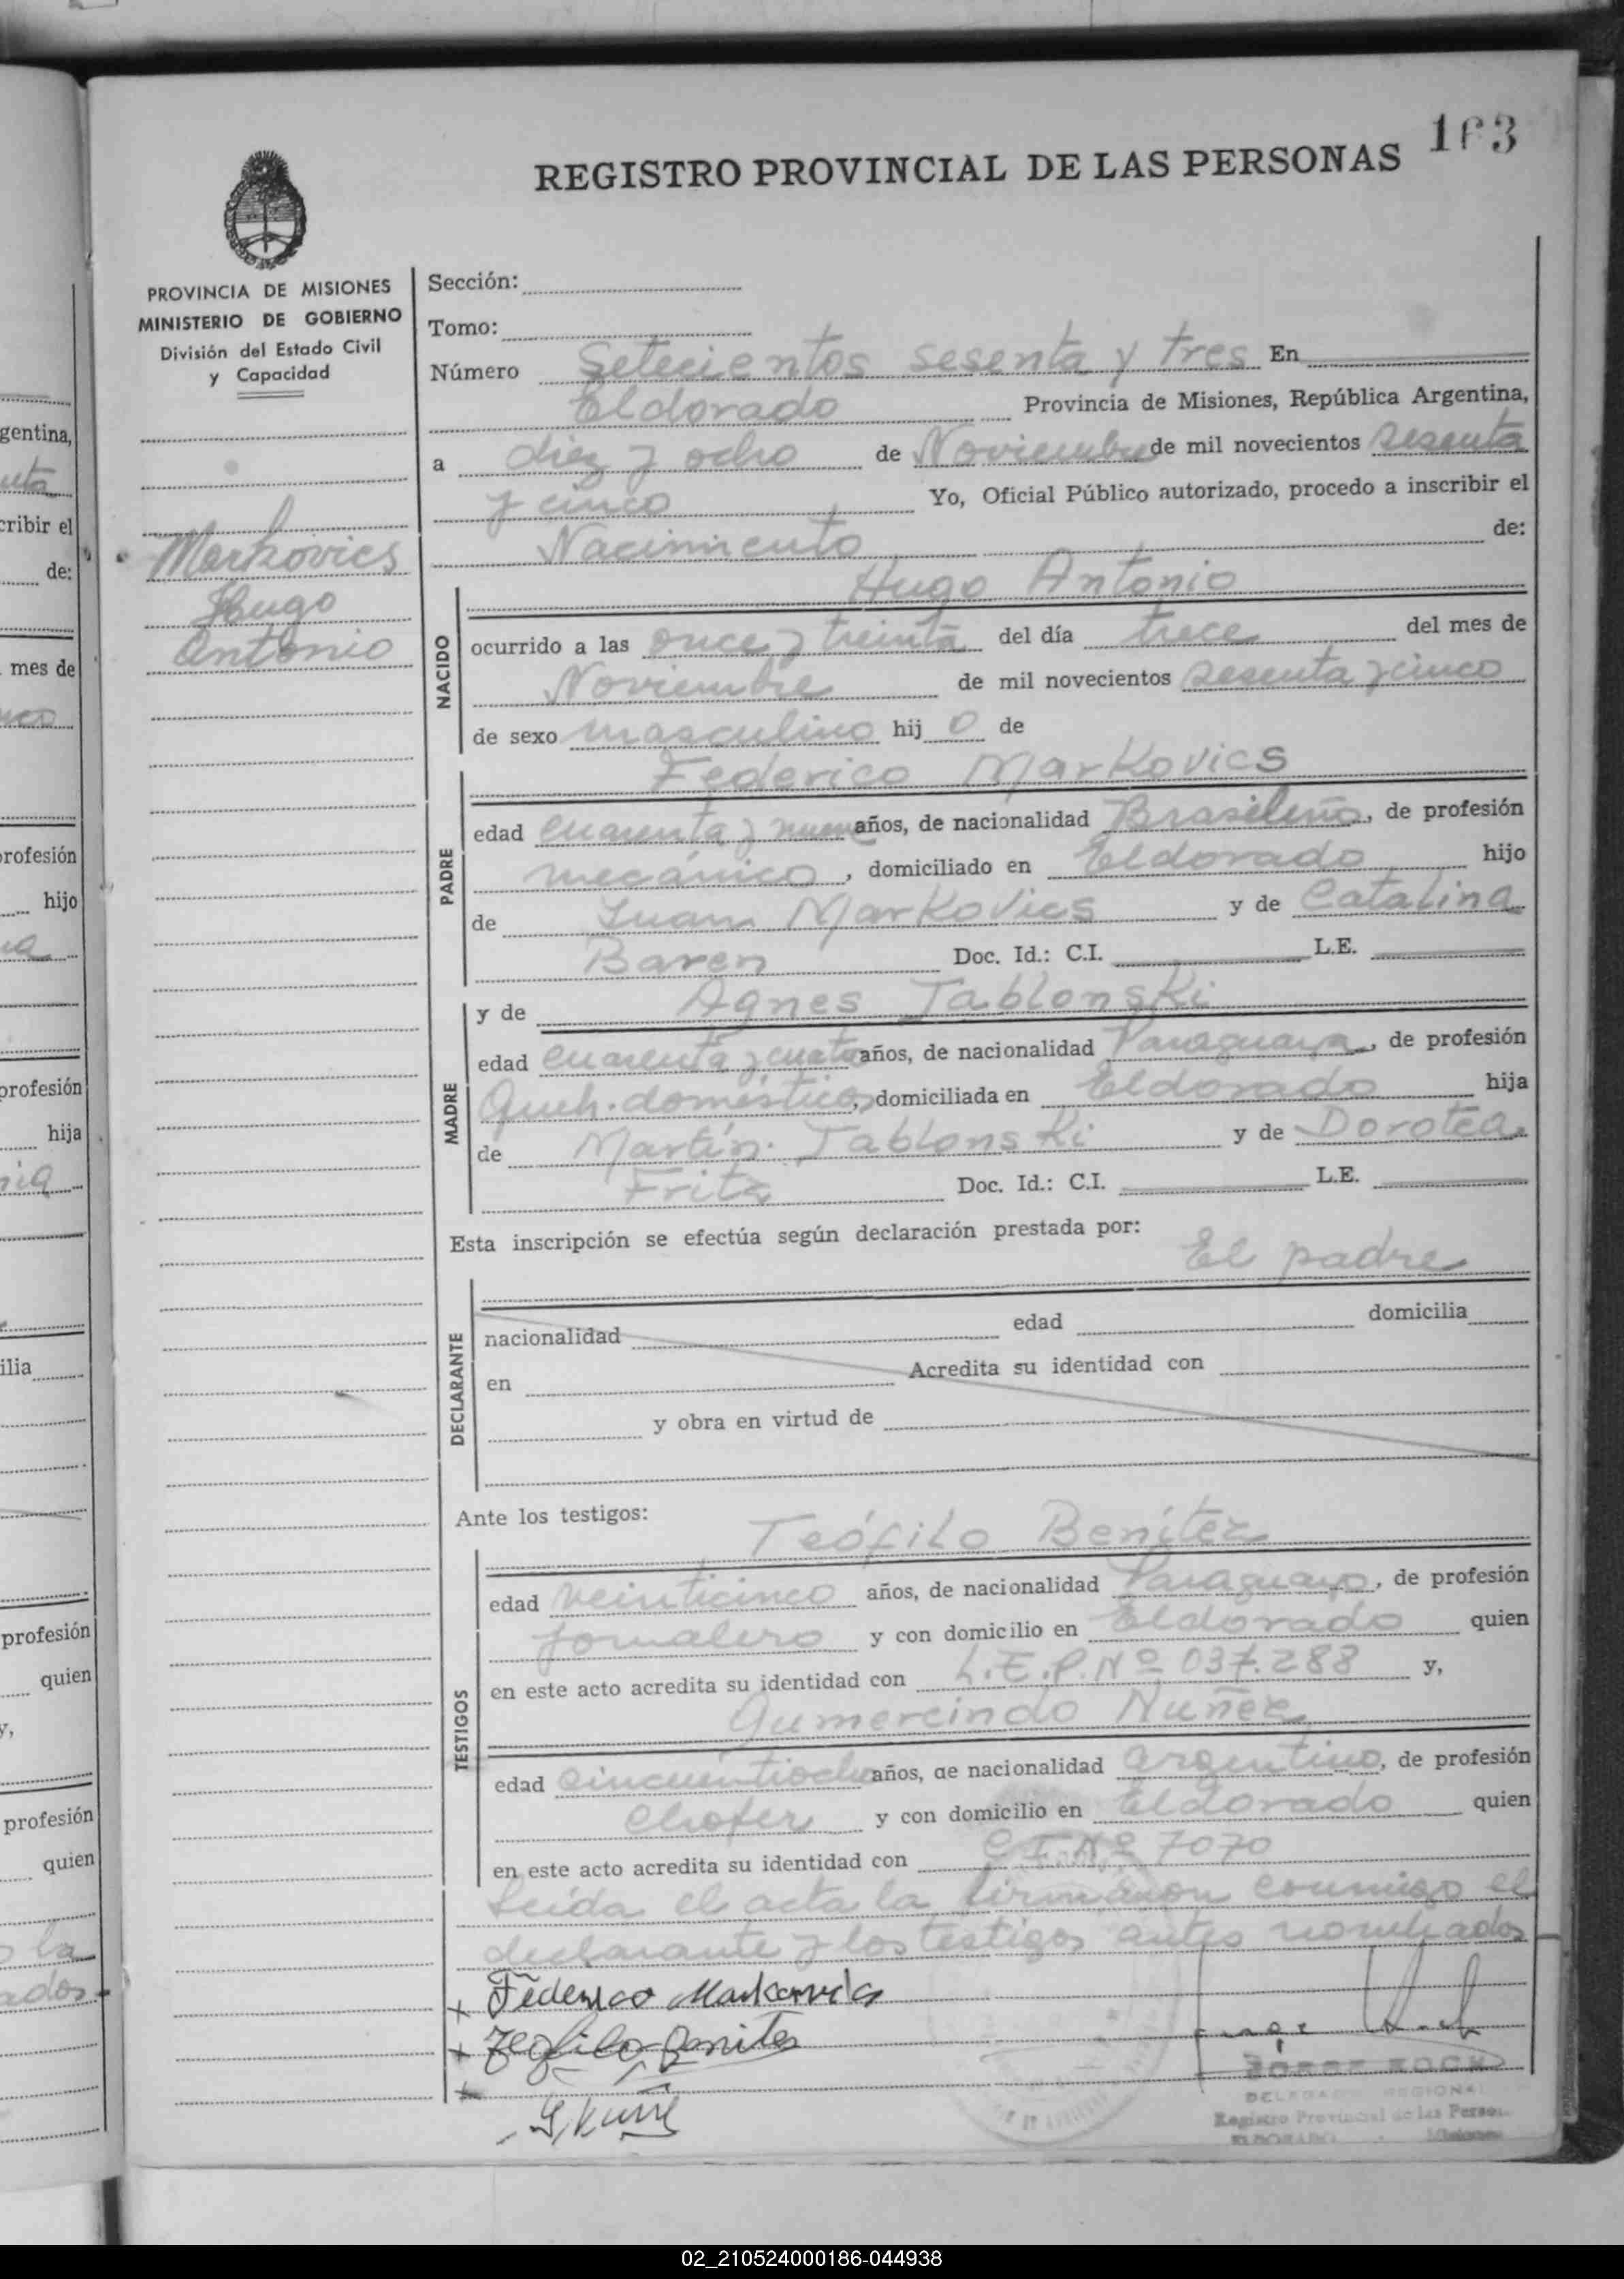 163
REGISTRO PROVINCIAL DE LAS PERSONAS
PROVINCIA DE MISIONES
MINISTERIO DE GOBIERNO
División del Estado Civil
y Capacidad
Markovics
Hugo
Antonio
Sección:
Tomo:
Número Setecientos sesenta y tres En
Eldorado Provincia de Misiones, República Argentina,
a diez y ocho de Noviembre de mil novecientos sesenta
y cinco Yo, Oficial Público autorizado, procedo a inscribir el
Nacimiento de:
Hugo Antonio
NACIDO
ocurrido a las once y treinta del día trece del mes de
Noviembre de mil novecientos sesenta y cinco
de sexo masculino hij o de
Federico Markovics
PADRE
edad cuarenta y nueve años, de nacionalidad Brasileño, de profesión
mecánico, domiciliado en Eldorado hijo
de Juan Markovics y de Catalina
Baren Doc. Id.: C.I. L.E.
y de Agnes Jablonski
MADRE
edad cuarenta y cuatro años, de nacionalidad Paraguaya, de profesión
Queh. domésticos, domiciliada en Eldorado hija
de Martín Jablonski y de Dorotea
Fritz Doc. Id.: C.I. L.E.
Esta inscripción se efectúa según declaración prestada por:
El padre
DECLARANTE
nacionalidad edad domicilia
en Acredita su identidad con
y obra en virtud de
Ante los testigos:
Teófilo Benítez
TESTIGOS
edad veinticinco años, de nacionalidad Paraguayo, de profesión
jornalero y con domicilio en Eldorado quien
en este acto acredita su identidad con L.E.P.Nº 037.288 y,
Gumercindo Nuñez
edad cincuentiocho años, de nacionalidad argentino, de profesión
Chofer y con domicilio en Eldorado quien
en este acto acredita su identidad con C.I.Nº 7070
Leída el acta la firmaron conmigo el
declarante y los testigos antes nombrados
Federico Markovics
Teofilo Benites
JORGE KOCH
DELEGADO REGIONAL
Registro Provincial de las Person
ELDORADO Misiones
gentina,
cribir el
de:
mes de
profesión
hijo
profesión
hija
ilia
profesión
quien
y,
profesión
quien
la
02_210524000186-044938